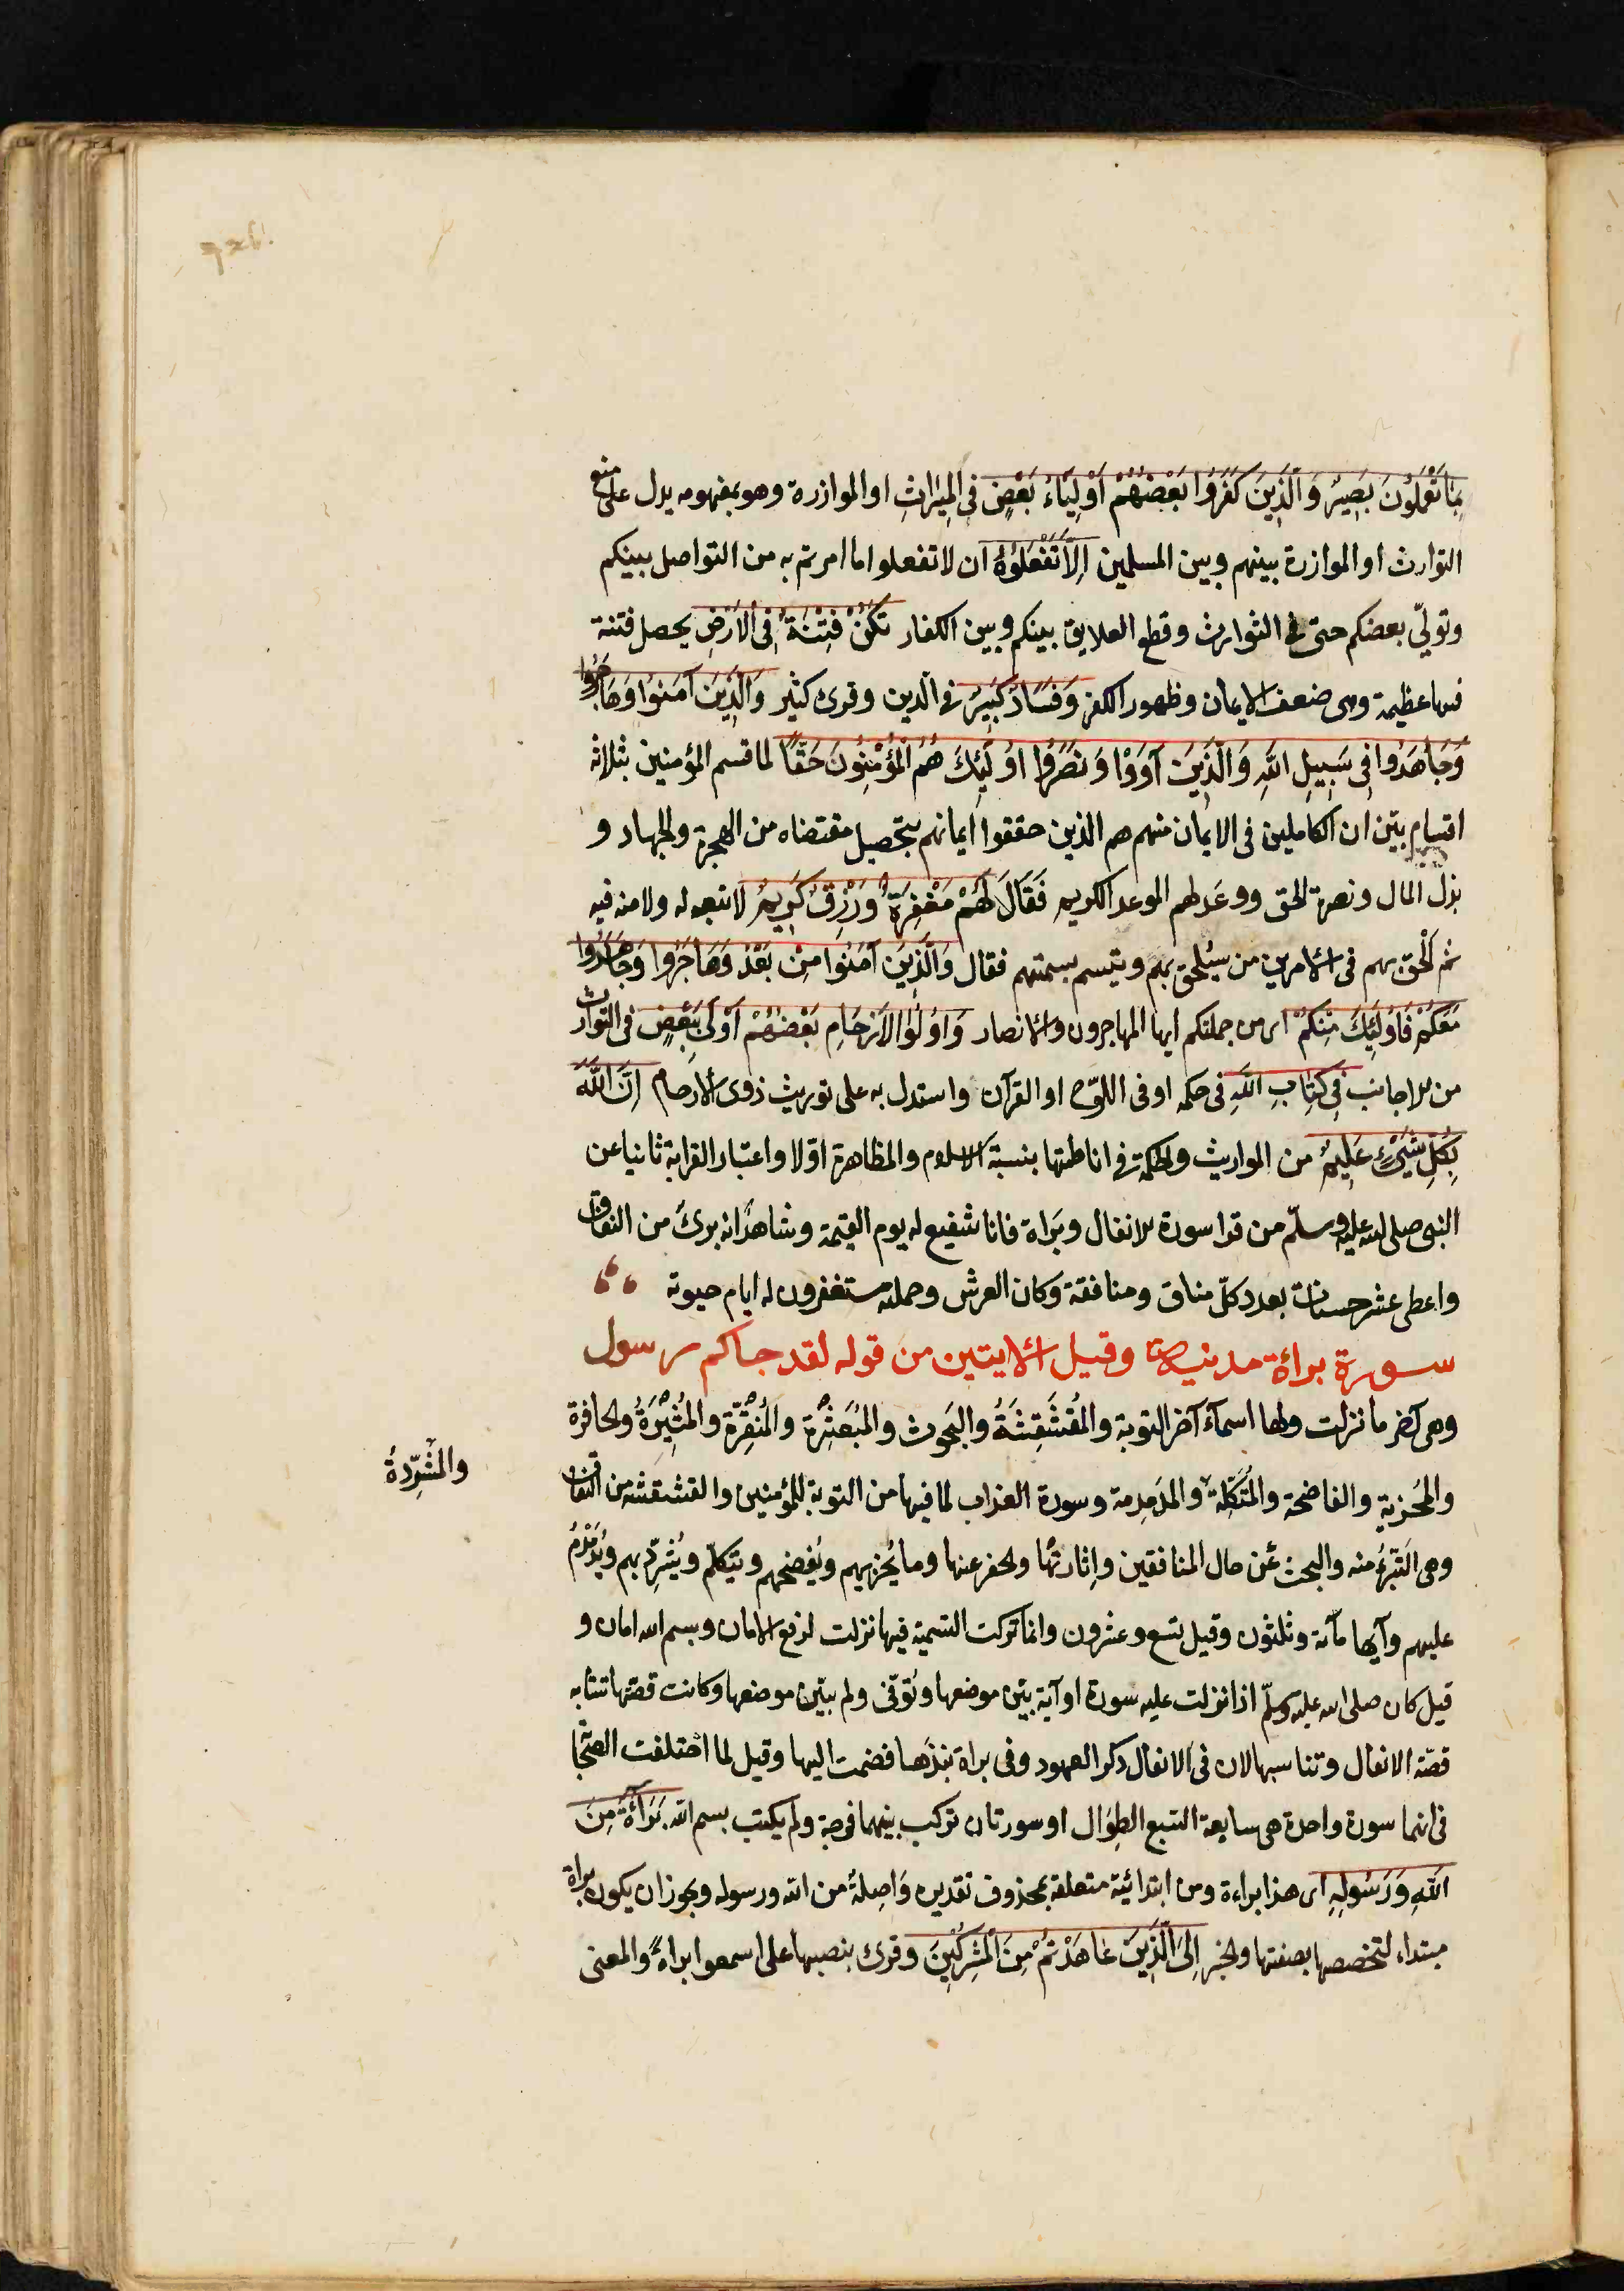 بِمَا تَعْمَلُوْنَ بَصِيرٌ وَالَّذِينَ كَفَرُوا بَعْضُهُمْ أَوْلِيَاءُ بَعْضٍ فِي الْمِيرَاثِ او الموازرة وهو بمفهومه يدل على منع
التوارث او الموازرة بينهم وبين المسلمين اِلَّا تَفْعَلُوْهُ ان لا تفعلوا ما امرتم به من التواصل بينكم
وتولّي بعضكم حتى في التوارث وقطع العلايق بينكم وبين الكفار تَكُنْ فِتْنَةٌ فِى الْاَرْضِ يحصل فتنة
فيها عظيمة وهى ضعف الايمان وظهور الكفر وَفَسَادٌ كَبِيرٌ في الدين وقرئ كثير وَالَّذِينَ آمَنُوا وَهَاجَرُوا
وَجَاهَدُوا فِى سَبِيلِ اللهِ وَالَّذِينَ آوَوْا وَنَصَرُوا اُولَئِكَ هُمُ الْمُؤْمِنُونَ حَقًّا لما قسم المؤمنين ثلاثة
اقسام بيّن ان الكاملين فى الايمان منهم هم الذين حققوا ايمانهم بتحصيل مقتضاه من الهجرة والجهاد و
بذل المال ونصرة الحق ووعَد لهم الموعد الكريم فَقَالَ لَهُمْ مَغْفِرَةٌ وَرِزْقٌ كَرِيمٌ لا تبعه له ولا منة فيه
ثم اَلْحق بهم فى الامرين من سيُلحق بهم ويتسم بسمتهم فقال وَالَّذِينَ آمَنُوا مِنْ بَعْدُ وَهَاجَرُوا وَجَاهَدُوا
مَعَكُمْ فَاُولَئِكَ مِنْكُمْ اى من جملتكم ايها المهاجرون والانصار وَاُولُوا الْاَرْحَامِ بَعْضُهُمْ اَوْلَى بِبَعْضٍ فى التوارث
من الاجانب فِى كِتَابِ اللهِ فى حكمه او فى اللوح او القرآن واستدل به على توريث ذوى الارحام اِنَّ اللهَ
بِكُلِّ شَيْءٍ عَلِيمٌ من المواريث والحكمة في اناطتها بنسبة الاسلام والمظاهرة اوّلا واعتبار القرابة ثانيا عن
النبى صلى الله عليه وسلّم من قرا سورة الانفال وبَراة فانا شفيع له يوم القيمة وشاهدٌ انه برئ من النفاق
واعطى عشر حسنات بعدد كلّ منافق ومنافقة وكان العرش وحملته يستغفرون له ايام حيوته
سورة براءة مدنية وقيل الا ايتين من قوله لقد جاكم رسول
وهى آخر ما نزلت ولها اسمآء آخر التوبة والمُقَشْقِشَةُ والبَحوث والمُبَعْثِرَة والمُنَقِّرَة والمُثِيْرَةُ والحافرة
والمُخزية والفاضحة والمُنَكِّلة والمدَمدِمة وسورة العذاب لما فيها من التوبة للمؤمنين والقشقشة من النفاق
والمُشَرِّدةُ
وهى التَبَرُّءُ منه والبحث عَن حال المنافقين وإِثارتها والحفر عنها وما يُخزيهم ويُفضحهم وينكلهم ويُشَرِّد بهم ويُدَمْدِمُ
عليهم وآيها مآئة وثلثون وقيل تسع وعشرون وانما تركت التسمية فيها نزلت لرفع الامان وبسم الله امان و
قيل كان صلى الله عليه وسلّم اذا نزلت عليه سورة او آية بيّن موضعها وتُوفّى ولم يبيّن موضعها وكانت قصّتها تشابه
قصّة الانفال وتناسبها لان فى الانفال ذكر العهود وفى براة نبذها فضمت اليها وقيل لما اختلفت الصّحابة
فى انهما سورة واحدة هى سابعة السّبع الطِوَال او سورتان تركت بينهما فرجة ولم يكتب بسم الله بَرَآءَةٌ مِنَ
اللهِ وَرَسُولِهِ اى هذا براءة ومن ابتدائيّة متعلقة بمحذوف تقديره وَاصِلةٌ من الله ورسوله ويجوز ان يكون براة
مبتداء لتخصصها بصفتها والخبر اِلَى الَّذِينَ عَاهَدْتُمْ مِنَ الْمُشْرِكِينَ وقرئ بنصبها على اسمعوا براءةً والمعنى